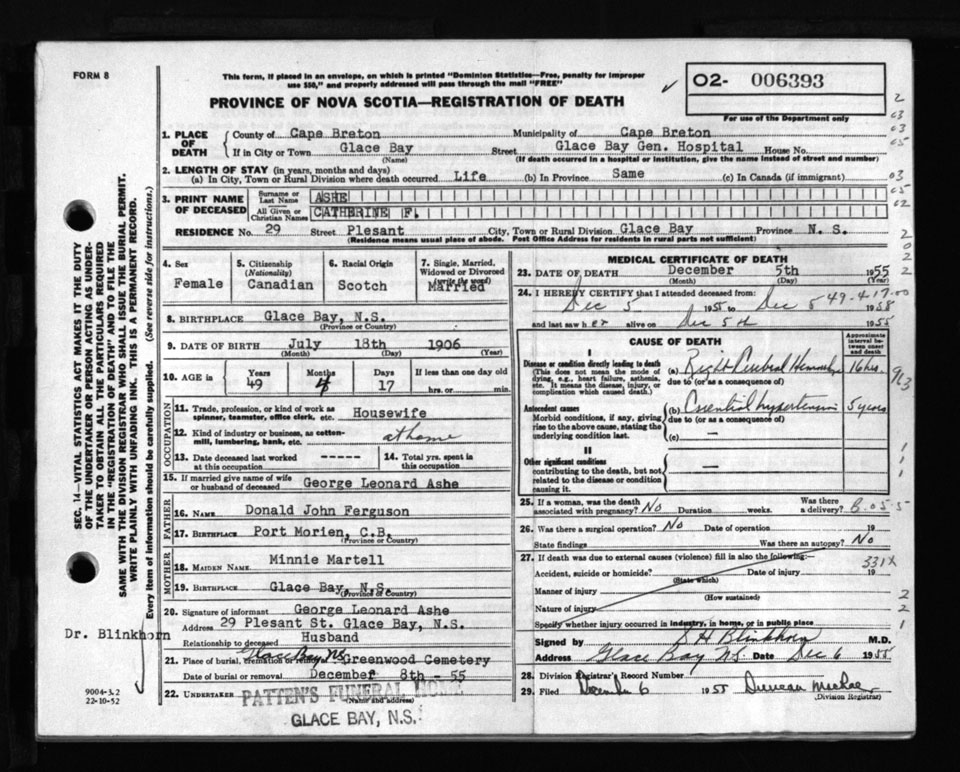 FORM 8
This form, if placed in an envelope, on which is printed "Dominion Statistics—Free, penalty for improper
use $50," and properly addressed will pass through the mail "FREE"
PROVINCE OF NOVA SCOTIA—REGISTRATION OF DEATH
O2- 006393
For use of the Department only
SEC. 14—VITAL STATISTICS ACT MAKES IT THE DUTY
OF THE UNDERTAKER OR PERSON ACTING AS UNDER-
TAKER TO OBTAIN ALL THE PARTICULARS REQUIRED
IN THE "REGISTRATION OF DEATH" AND TO FILE THE
SAME WITH THE DIVISION REGISTRAR WHO SHALL ISSUE THE BURIAL PERMIT.
WRITE PLAINLY WITH UNFADING INK. THIS IS A PERMANENT RECORD.
Every item of information should be carefully supplied. (See reverse side for instructions.)
1. PLACE OF DEATH County of Cape Breton Municipality of Cape Breton
If in City or Town Glace Bay Street Glace Bay Gen. Hospital House No.
(Name) (If death occurred in a hospital or institution, give the name instead of street and number)
2. LENGTH OF STAY (in years, months and days)
(a) In City, Town or Rural Division where death occurred Life (b) In Province Same (c) In Canada (if immigrant)
3. PRINT NAME OF DECEASED Surname or Last Name ASHE
All Given or Christian Names CATHERINE F.
RESIDENCE No. 29 Street Plesant City, Town or Rural Division Glace Bay Province N. S.
(Residence means usual place of abode. Post Office Address for residents in rural parts not sufficient)
4. Sex Female
5. Citizenship (Nationality) Canadian
6. Racial Origin Scotch
7. Single, Married, Widowed or Divorced (write the word) Married
8. BIRTHPLACE Glace Bay, N.S.
(Province or Country)
9. DATE OF BIRTH July 18th 1906
(Month) (Day) (Year)
10. AGE IS Years 49 Months 4 Days 17 If less than one day old
hrs. or min.
OCCUPATION
11. Trade, profession, or kind of work as spinner, teamster, office clerk, etc. Housewife
12. Kind of industry or business, as cotton-mill, lumbering, bank, etc. at home
13. Date deceased last worked at this occupation ----- 14. Total yrs. spent in this occupation
15. If married give name of wife or husband of deceased George Leonard Ashe
FATHER
16. NAME Donald John Ferguson
17. BIRTHPLACE Port Morien, C.B.
(Province or Country)
MOTHER
18. MAIDEN NAME Minnie Martell
19. BIRTHPLACE Glace Bay, N.S.
(Province or Country)
20. Signature of informant George Leonard Ashe
Address 29 Plesant St. Glace Bay, N.S.
Relationship to deceased Husband
Dr. Blinkhorn
21. Place of burial, cremation or removal Glace Bay NS Greenwood Cemetery
Date of burial or removal December 8th - 55
22. UNDERTAKER PATTEN'S FUNERAL HOME
(Name and address)
GLACE BAY, N.S.
9004-3.2
22-10-52
MEDICAL CERTIFICATE OF DEATH
23. DATE OF DEATH December 5th 1955
(Month) (Day) (Year)
24. I HEREBY CERTIFY that I attended deceased from:
Dec 5 1955 to Dec 5 1955
49-4-17-00
and last saw her alive on Dec 5th 1955
CAUSE OF DEATH
Approximate interval between onset and death
I
Disease or condition directly leading to death
(This does not mean the mode of dying, e.g., heart failure, asthenia, etc. It means the disease, injury, or complication which caused death.)
(a) Right Cerebral Hemorrhage 16 hrs.
due to (or as a consequence of)
Antecedent causes
Morbid conditions, if any, giving rise to the above cause, stating the underlying condition last.
(b) Essential hypertension 5 years
due to (or as a consequence of)
(c) —
II
Other significant conditions
contributing to the death, but not related to the disease or condition causing it. —
25. If a woman, was the death associated with pregnancy? No Duration weeks. Was there a delivery?
26. Was there a surgical operation? No Date of operation 19
State findings Was there an autopsy? No
27. If death was due to external causes (violence) fill in also the following:—
331X
Accident, suicide or homicide? Date of injury 19
(State which)
Manner of injury
(How sustained)
Nature of injury
Specify whether injury occurred in industry, in home, or in public place
Signed by S H Blinkhorn M.D.
Address Glace Bay N.S. Date Dec 6 1955
28. Division Registrar's Record Number
29. Filed December 6 1955 Duncan MacRae
(Division Registrar)